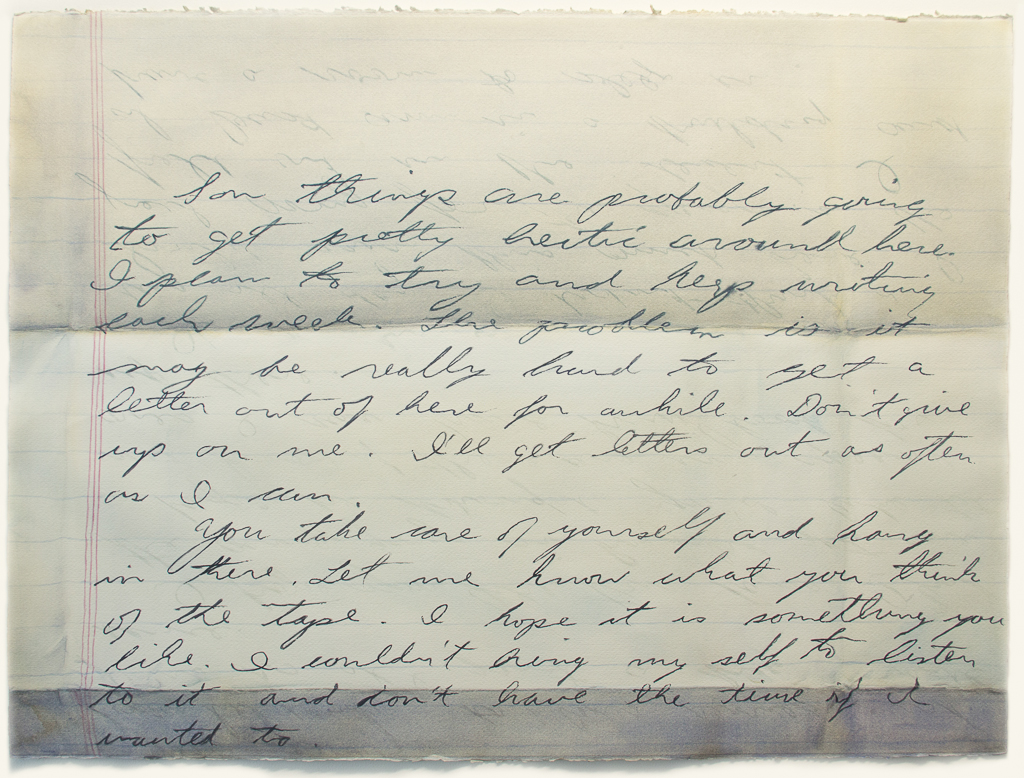 Son things are probably going
to get pretty hectic around here.
I plan to try and keep writing
each week. The problem is it
may be really hard to get a
letter out of here for awhile. Don't give
up on me. I'll get letters out as often
as I can.
You take care of yourself and hang
in there. Let me know what you think
of the tape. I hope it is something you
like. I couldn't bring my self to listen
to it and don't have the time if I
wanted to.